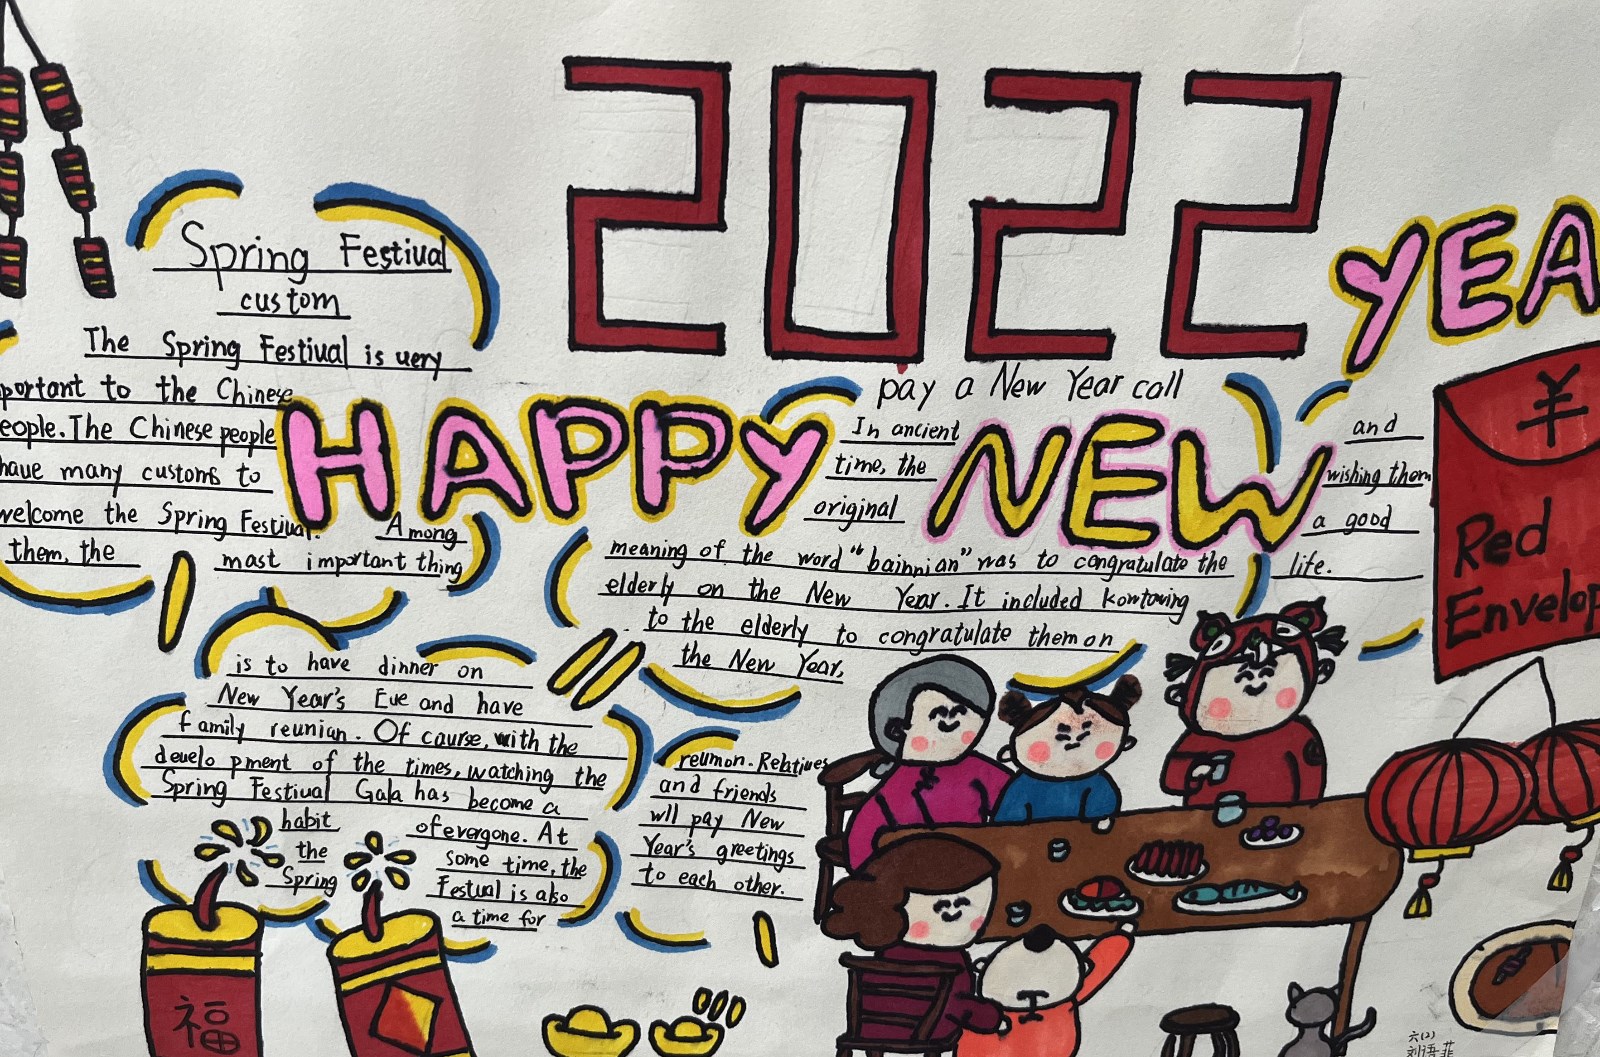 2022
HAPPY NEW YEA
Spring Festiual
custom
The Spring Festiual is uery
portant to the Chinese
eople. The Chinese people
haue many customs to
welcome the Spring Festiual.
them, the
Among
mast important thing
is to have dinner on
New Year's Eue and have
family reunian. Of caurse, with the
deuelo pment of the times, watching the
Spring Festiual Gala has become a
habit of evergone. At
the some time, the
Spring Festual is also
a time for
reumon. Relatiues
and friends
wll pay New
Year's greetings
to each other.
pay a New Year call
In ancient
time, the
original
meaning of the word "bainnian" was to congratulate the
elderly on the New Year. It included kowtowing
to the elderly to congratulate them on
the New Year,
and
wishing them
a good
life.
¥
Red
Envelop
福
六(2)
刘语菲